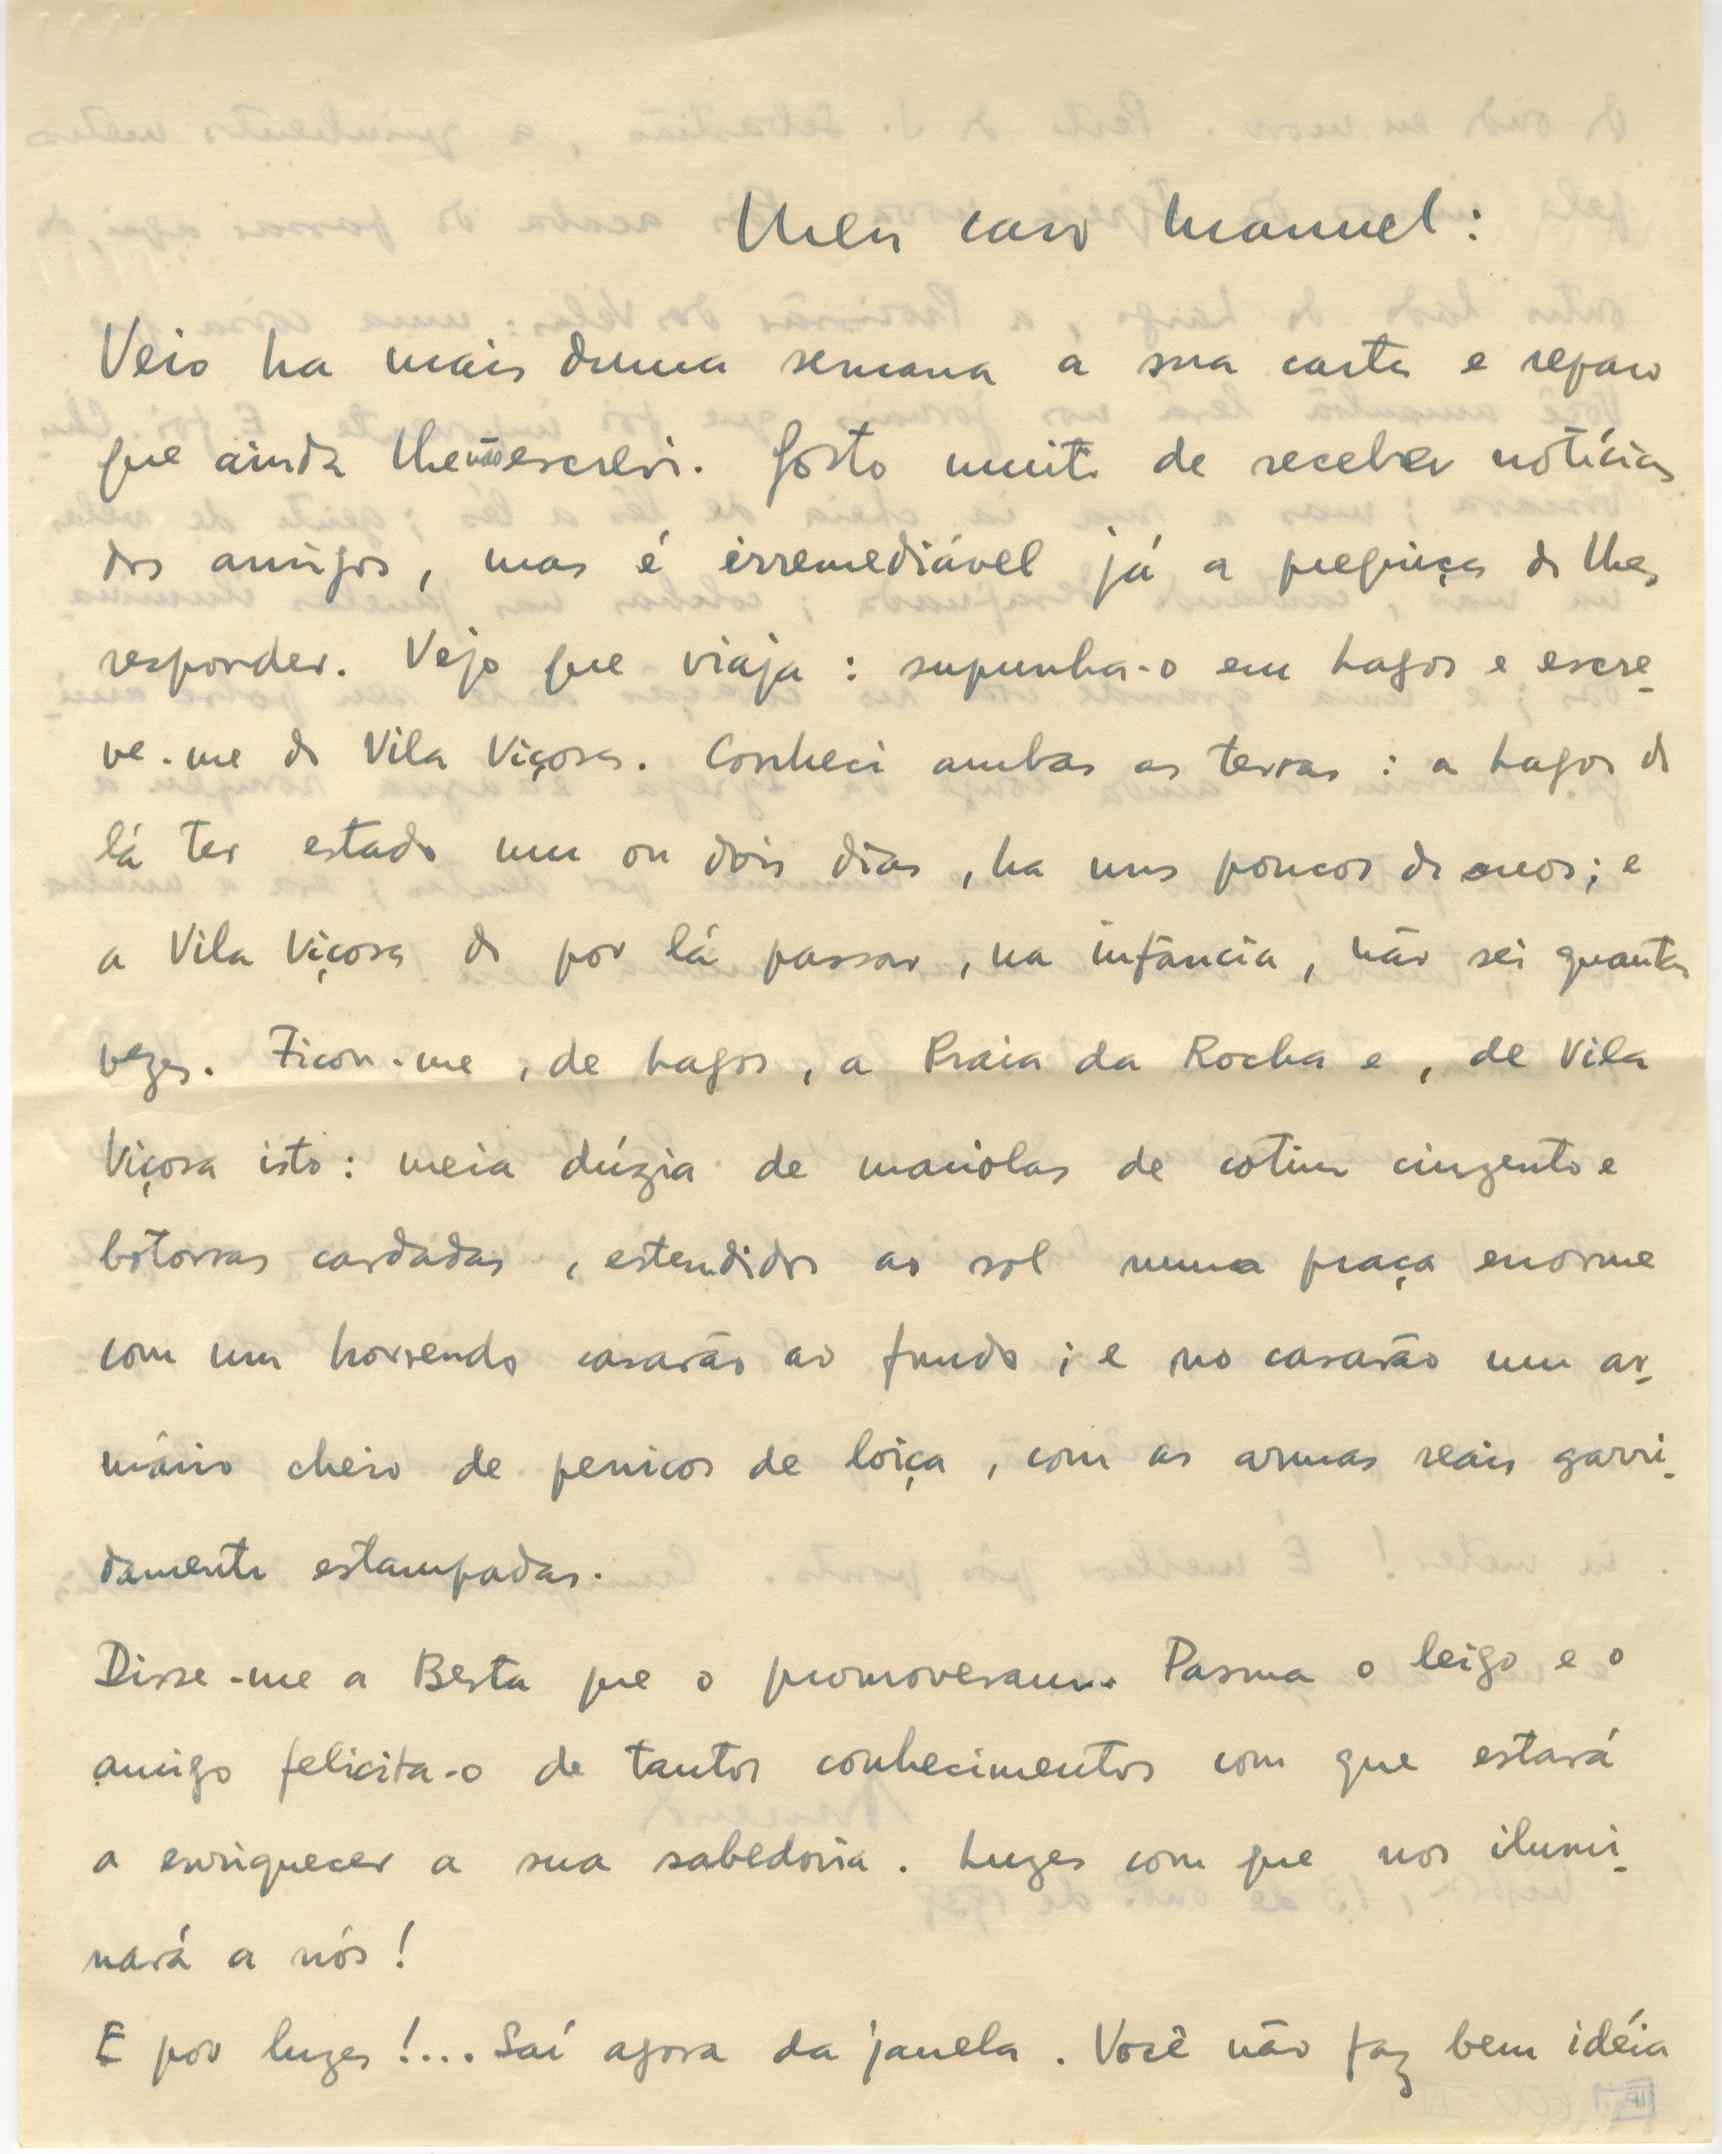 Meu caro Manuel:
Veio ha mais duma semana a sua carta e reparo
que ainda lhe não escrevi. Gosto muito de receber notícias
dos amigos, mas é irremediável já a preguiça de lhes
responder. Vejo que viaja: supunha-o em Lagos e escre-
ve-me de Vila Viçosa. Conheci ambas as terras: a Lagos de
lá ter estado um ou dois dias, ha uns poucos de anos; e
a Vila Viçosa de por lá passar, na infância, não sei quantas
vezes. Ficou-me, de Lagos, a Praia da Rocha e, de Vila
Viçosa isto: meia dúzia de mariolas de cotim cinzento e
botorras cardadas, estendidos ao sol numa praça enorme
com um horrendo casarão ao fundo; e no casarão um ar-
mário cheio de penicos de loiça, com as armas reais garri-
damente estampadas.
Disse-me a Besta que o promoveram. Pasma o leigo e o
amigo felicita-o de tantos conhecimentos com que estará
a enriquecer a sua sabedoria. Luzes com que nos ilumi-
nará a nós!
E por luzes!... Saí agora da janela. Você não faz bem idéia